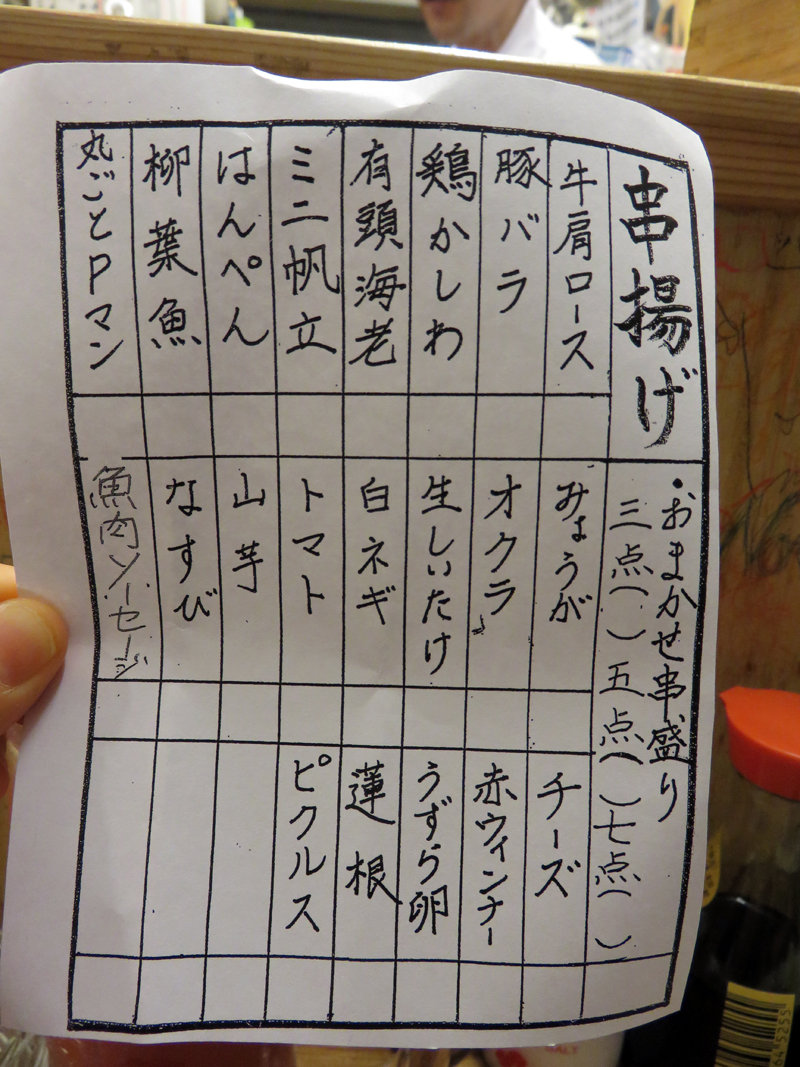 串揚げ
・おまかせ串盛り
三点( )五点( )七点( )
牛肩ロース
豚バラ
鶏かしわ
有頭海老
ミニ帆立
はんぺん
柳葉魚
丸ごとPマン
みょうが
オクラ
生しいたけ
白ネギ
トマト
山芋
なすび
魚肉ソーセージ
チーズ
赤ウィンナー
うずら卵
蓮根
ピクルス